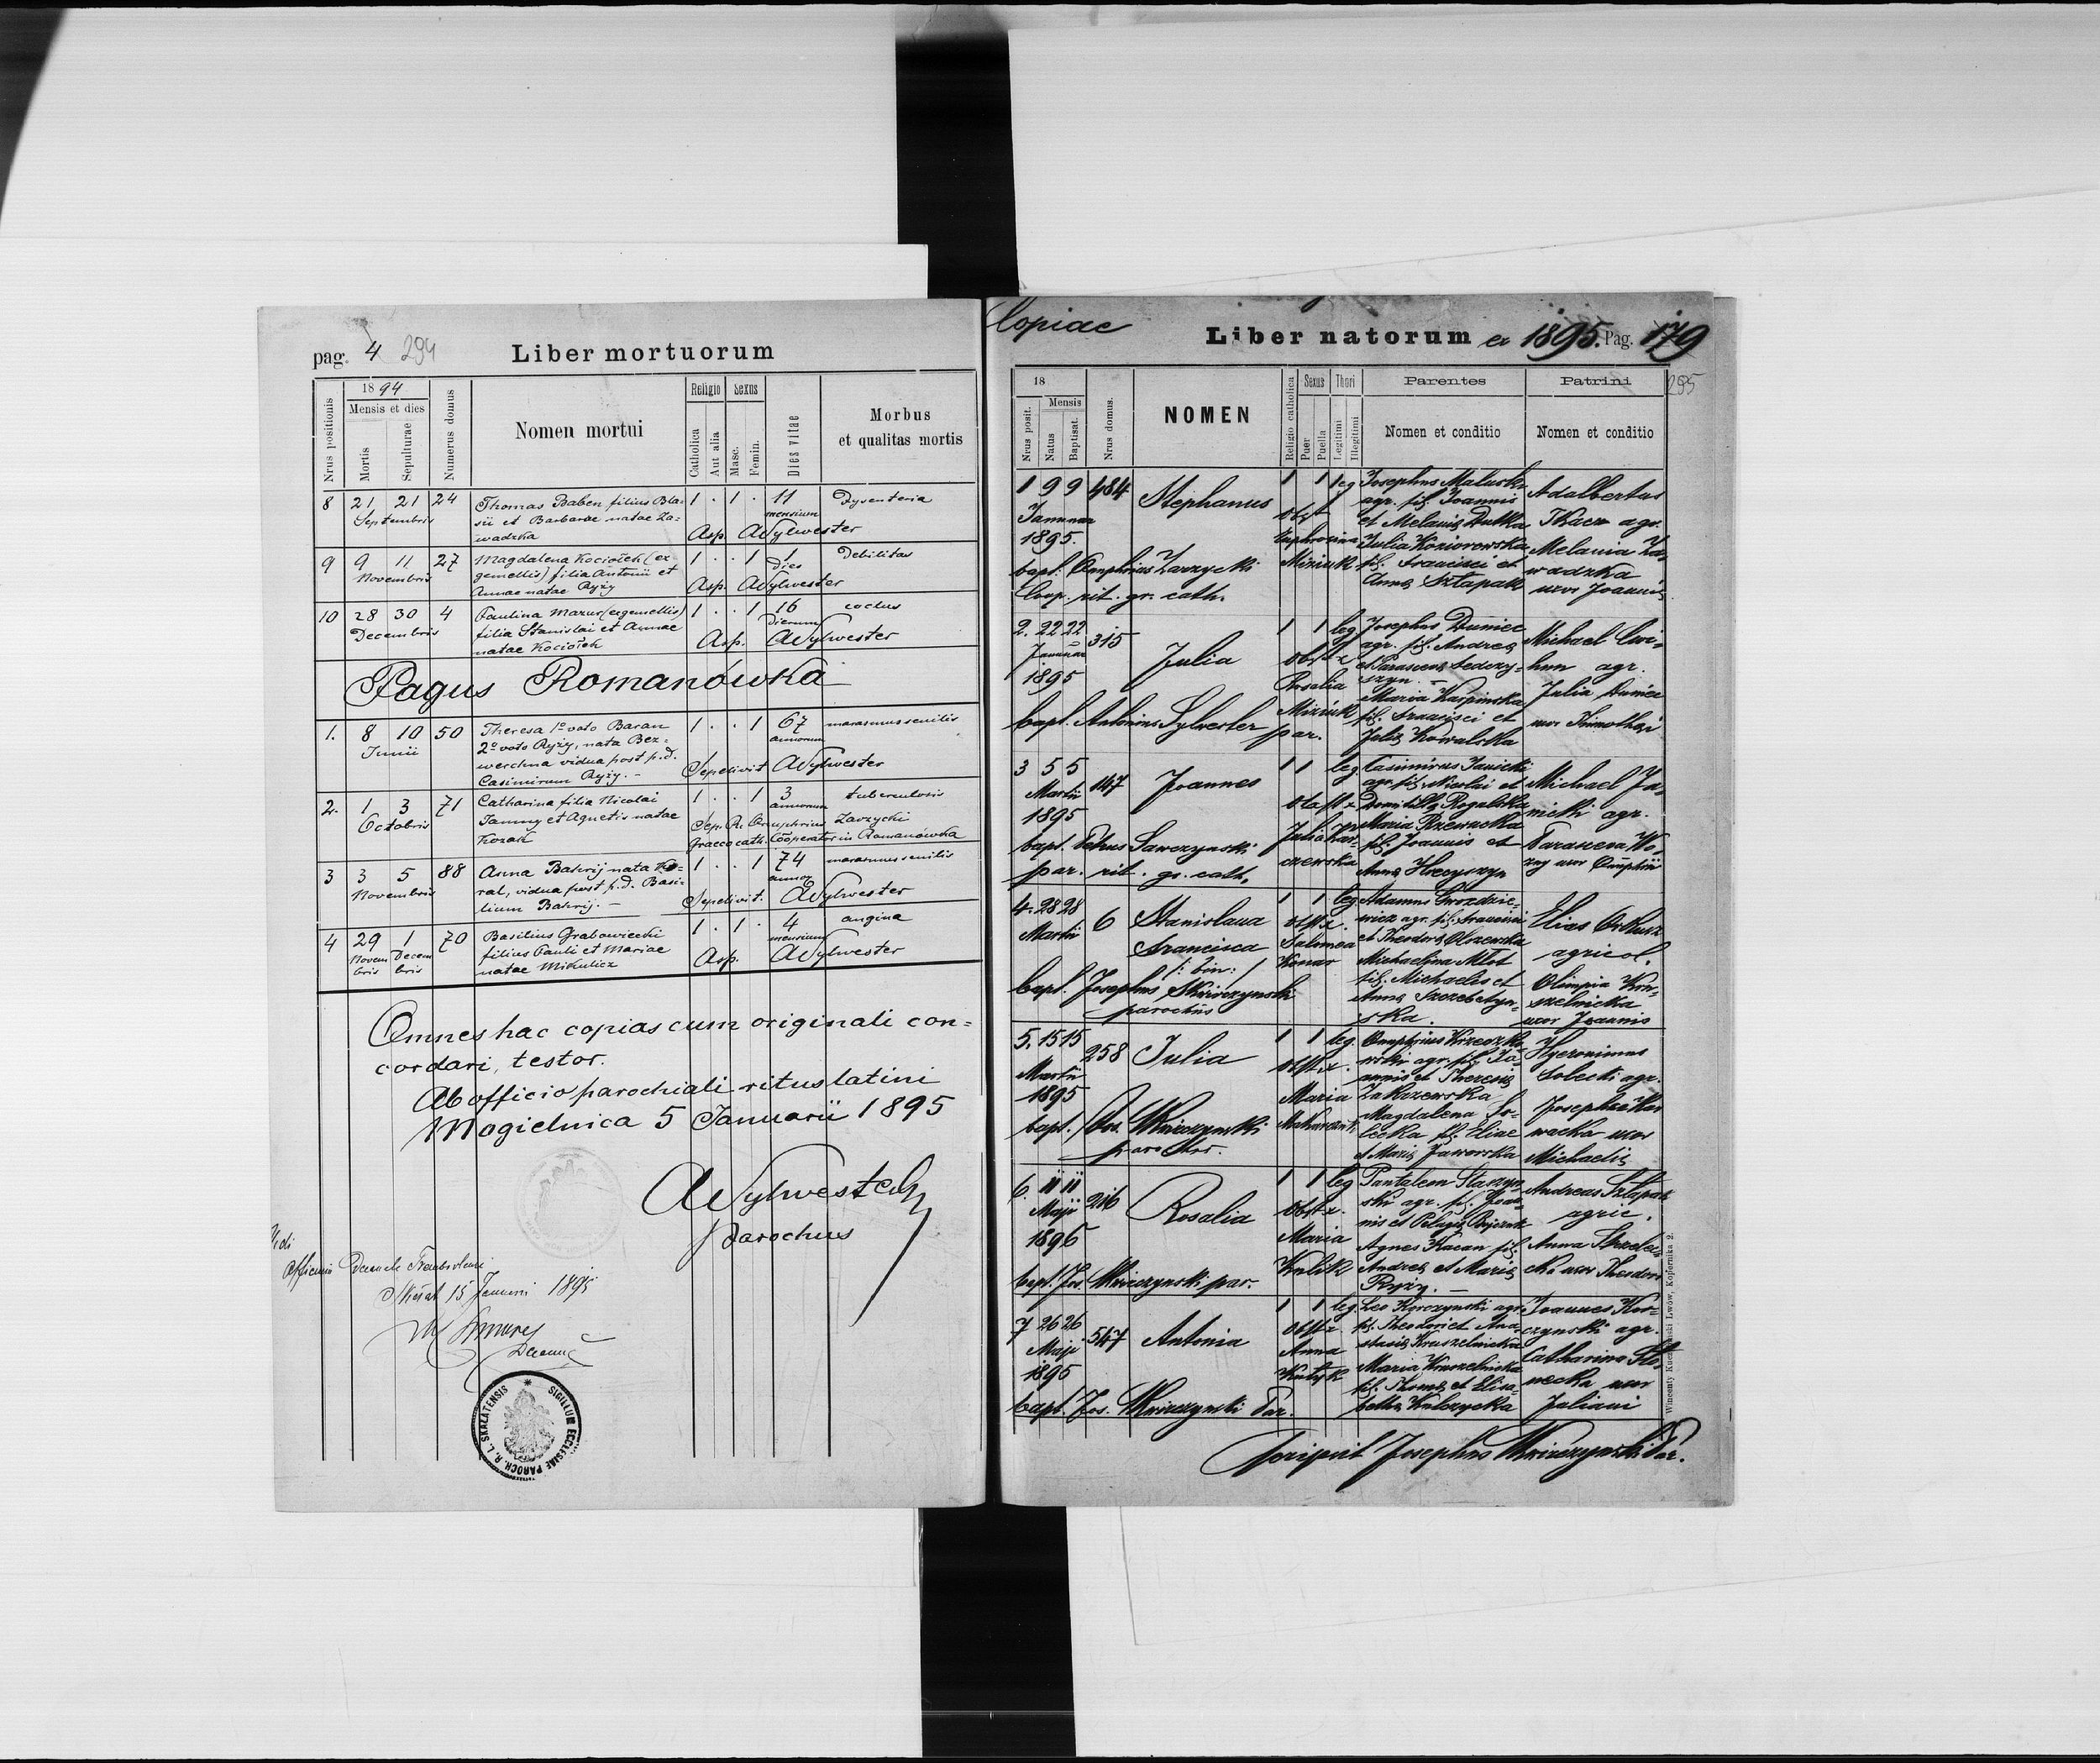 pag. 4 294 Liber mortuorum
Nrus positionis
1894
Mensis et dies
Mortis
Sepulturae
Numerus domus
Nomen mortui
Religio
Catholica
Aut alia
Sexus
Masc.
Femin.
Dies vitae
Morbus
et qualitas mortis
8 21 21 24 Thomas Baben filius Bla- 1 . 1 . 11 Dysenteria
Septembris sii et Barbarae natae Za- mensium
wadzka Asp. ASylwester
9 9 11 27 Magdalena Kociołek (ex 1 . . 1 1 Debilitas
Novembris gemellis) filia Antonii et Dies
Annae natae Ryży Asp. ASylwester
10 28 30 4 Paulina Mazur (ex gemellis) 1 . . 1 16
Decembris filia Stanislai et Annae dierum
natae Kociołek Asp. ASylwester
Pagus Romanówka
1. 8 10 50 Theresa 1º voto Baran 1 . . 1 67 marasmus senilis
Junii 2º voto Ryży, nata Bez- annorum
werchna vidua post p.d.
Casimirum Ryży. — Sepelivit ASylwester
2. 1 3 71 Catharina filia Nicolai 1 . . 1 3 tuberculosis
Octobris et Agnetis natae annorum
Kozak Sep. R. Onuphrius Zarzycki
Graeco cath. Cooperator in Romanówka
3 3 5 88 Anna Bahrij nata Ko- 1 . . 1 74 marasmus senilis
Novembris ral, vidua post p.d. Basi- annor.
lium Bahrij. — Sepelivit. ASylwester
4 29 1 70 Basilius Grabowiecki 1 . 1 . 4 angina
Novem Decem filius Pauli et Mariae mensium
bris bris natae Mikulicz Asp. ASylwester
Omnes hac copias cum originali con-
cordari, testor.
Ab officio parochiali ritus latini
Mogielnica 5 Januarii 1895
ASylwester
parochus
Vidi
Skałat 15 Januarii 1895
SIGILLUM ECCLESIAE PAROCH. R. L. SKAŁATENSIS
Copiae
Liber natorum ex 1895. Pag. 179
295
18
Nrus posit.
Mensis
Natus
Baptisat.
Nrus domus.
NOMEN
Religio catholica
Sexus
Puer
Puella
Thori
Legitimi
Illegitimi
Parentes
Nomen et conditio
Patrini
Nomen et conditio
1 9 9 484 Stephanus 1 1 leg Josephus Maluski Adalbertus
Januar agr. fil. Joannis Tkacz agr.
1895. et Melaniae Dutka
Euphrosina Julia Koziorowska Melania Za-
bapt. Onuphrius Zarzycki Miziuk fil. Francisci et wadzka
Coop. rit. gr. cath. Annae Sztapak uxor Joannis
2. 22 22 315 Julia 1 1 leg Josephus Dumiec Michael
Januar agr. fil. Andreae agr.
1895 Rosalia Julia Dumiec
Miziuk Maria Karpinska
bapt. Antonius Sylwester par. fil. Francisci et uxor Timothei
Juliae Kowalska
3 5 5 147 Joannes 1 1 leg Casimirus Janicki Michael Ja-
Martii agr. fil. Nicolai et nicki agr.
1895 Domitillae Rogalska
Maria Rzewucka
bapt. Petrus Sawczynski fil. Joannis et
par. rit. gr. cath. Annae uxor Onuphrii
4. 28 28 6 Stanislaua 1 1 leg Adamus Gwozdzie-
Martii Francisca obst. wicz agr. fil. Francisci Elias
/: bin: / Salomea et Theodorae Olszewska agricol.
Konar Michaelina Młot
bapt. Josephus Skwirczynski fil. Michaelis et Olimpia Kru-
parochus Annae Szczebetyn- szelnicka
ska. uxor Joannis
5. 15 15 258 Julia 1 1 leg Hyeronimus
Martii agr. fil. Jo- Solecki agr.
1895 Maria annis et Theresiae
Zakrzewska
bapt. Jos. Skwirczynski Magdalena So-
parochus. lecka fil. Eliae uxor
et Mariae Jaworska Michaelis
6. 11 11 216 Rosalia 1 1 leg Pantaleon Staczyn- Andreas Sztapak
Maji ski agr. fil. Joan- agric.
1895 Maria nis et Pelagiae
Kulik Agnes Kacan fil. Anna
bapt. Jos. Skwirczynski par. Andreae et Mariae uxor Theodori
Ryży. —
7 26 26 547 Antonia 1 1 leg. Leo Korczynski agr. Joannes Kor-
Maji Anna fil. Theodori et Ana- czynski agr.
1895 stasiae Kruszelnicka Catharina
Maria Kruszelnicka uxor
fil. Thomae et Elisa- Juliani
bapt. Jos. Skwirczynski Par. bethae Kulczycka
Scripsit Josephus Skwirczynski Par.
Wincenty Kuczabiński Lwów, Kopernika 2.